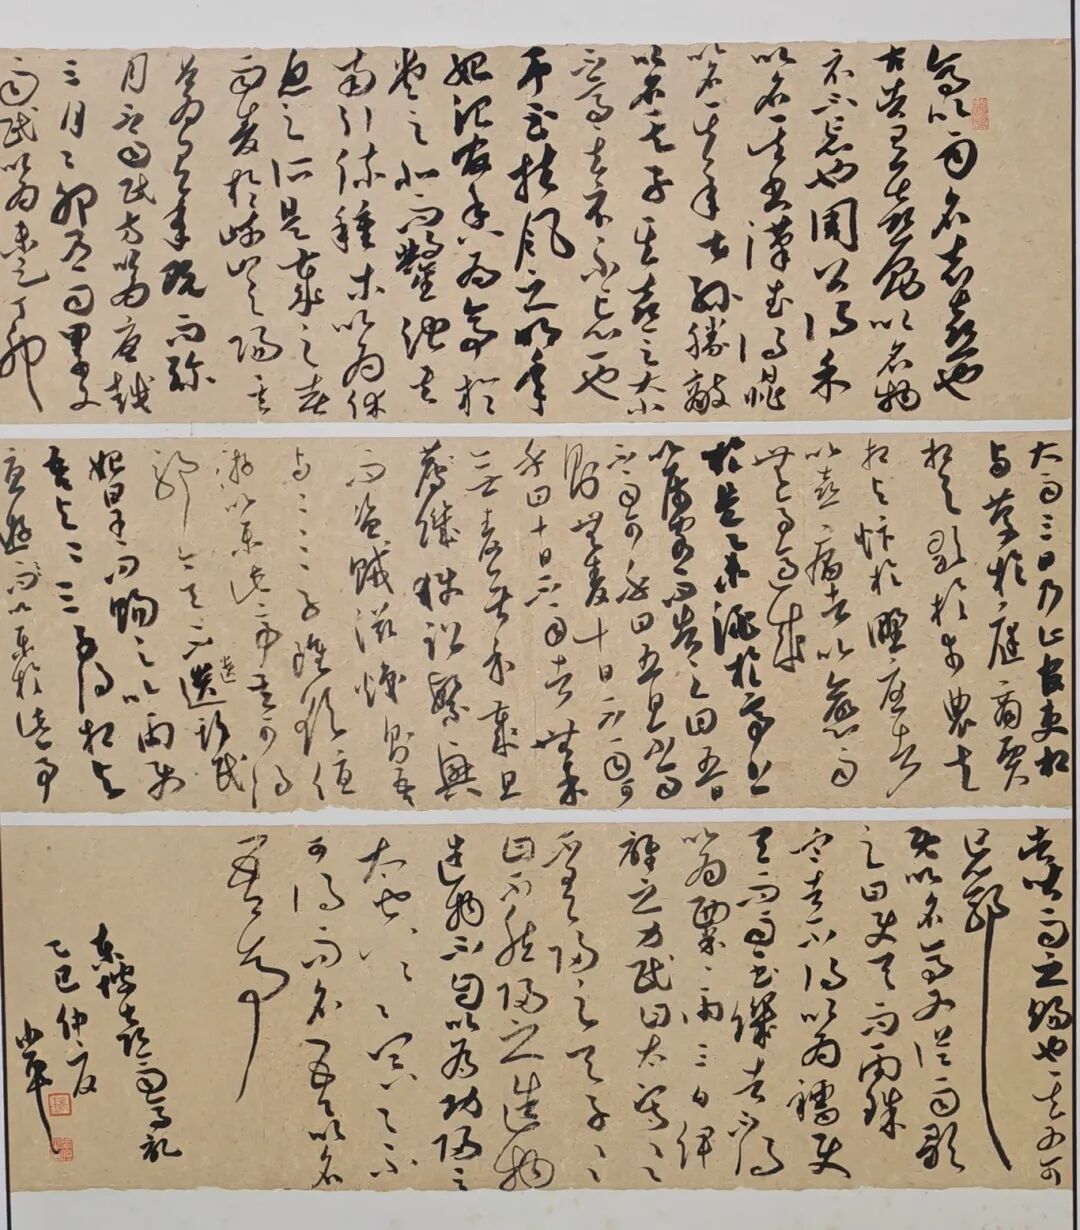 亭以雨名志喜也
古者有喜則以名物
示不忘也周公得禾
以名其書漢武得鼎
以名其年叔孫勝敵
以名其子其喜之大小
不齊其示不忘一也
予至扶風之明年
始治官舍為亭於
堂之北而鑿池其
南引流種木以為休
息之所是歲之春
雨麥於岐山之陽其
占為有年既而彌
月不雨民方以為憂越
三月乙卯乃雨甲子又
雨民以為未足丁卯
大雨三日乃止官吏相
與慶於庭商賈
相與歌於市農夫
相與忭於野憂者
以喜病者以愈而
吾亭適成
於是舉酒於亭上
以屬客而告之曰五日
不雨可乎曰五日不雨
則無麥十日不雨可
乎曰十日不雨則無禾
無麥無禾歲且
薦饑獄訟繁興
而盜賊滋熾則吾
與二三子雖欲優
游以樂於此亭其可得
耶今天不遺斯民
始旱而賜之以雨使
吾與二三子得相與
優游而樂於此亭
者皆雨之賜也其又可
忘耶
既以名亭又從而歌
之曰使天而雨珠
寒者不得以為襦使
天而雨玉饑者不得
以為粟一雨三日伊
誰之力民曰太守太守
不有歸之天子天子
曰不然歸之造物
造物不自以為功歸之
太空太空冥冥不
可得而名吾以名
吾亭
東坡喜雨亭記
乙巳仲夏